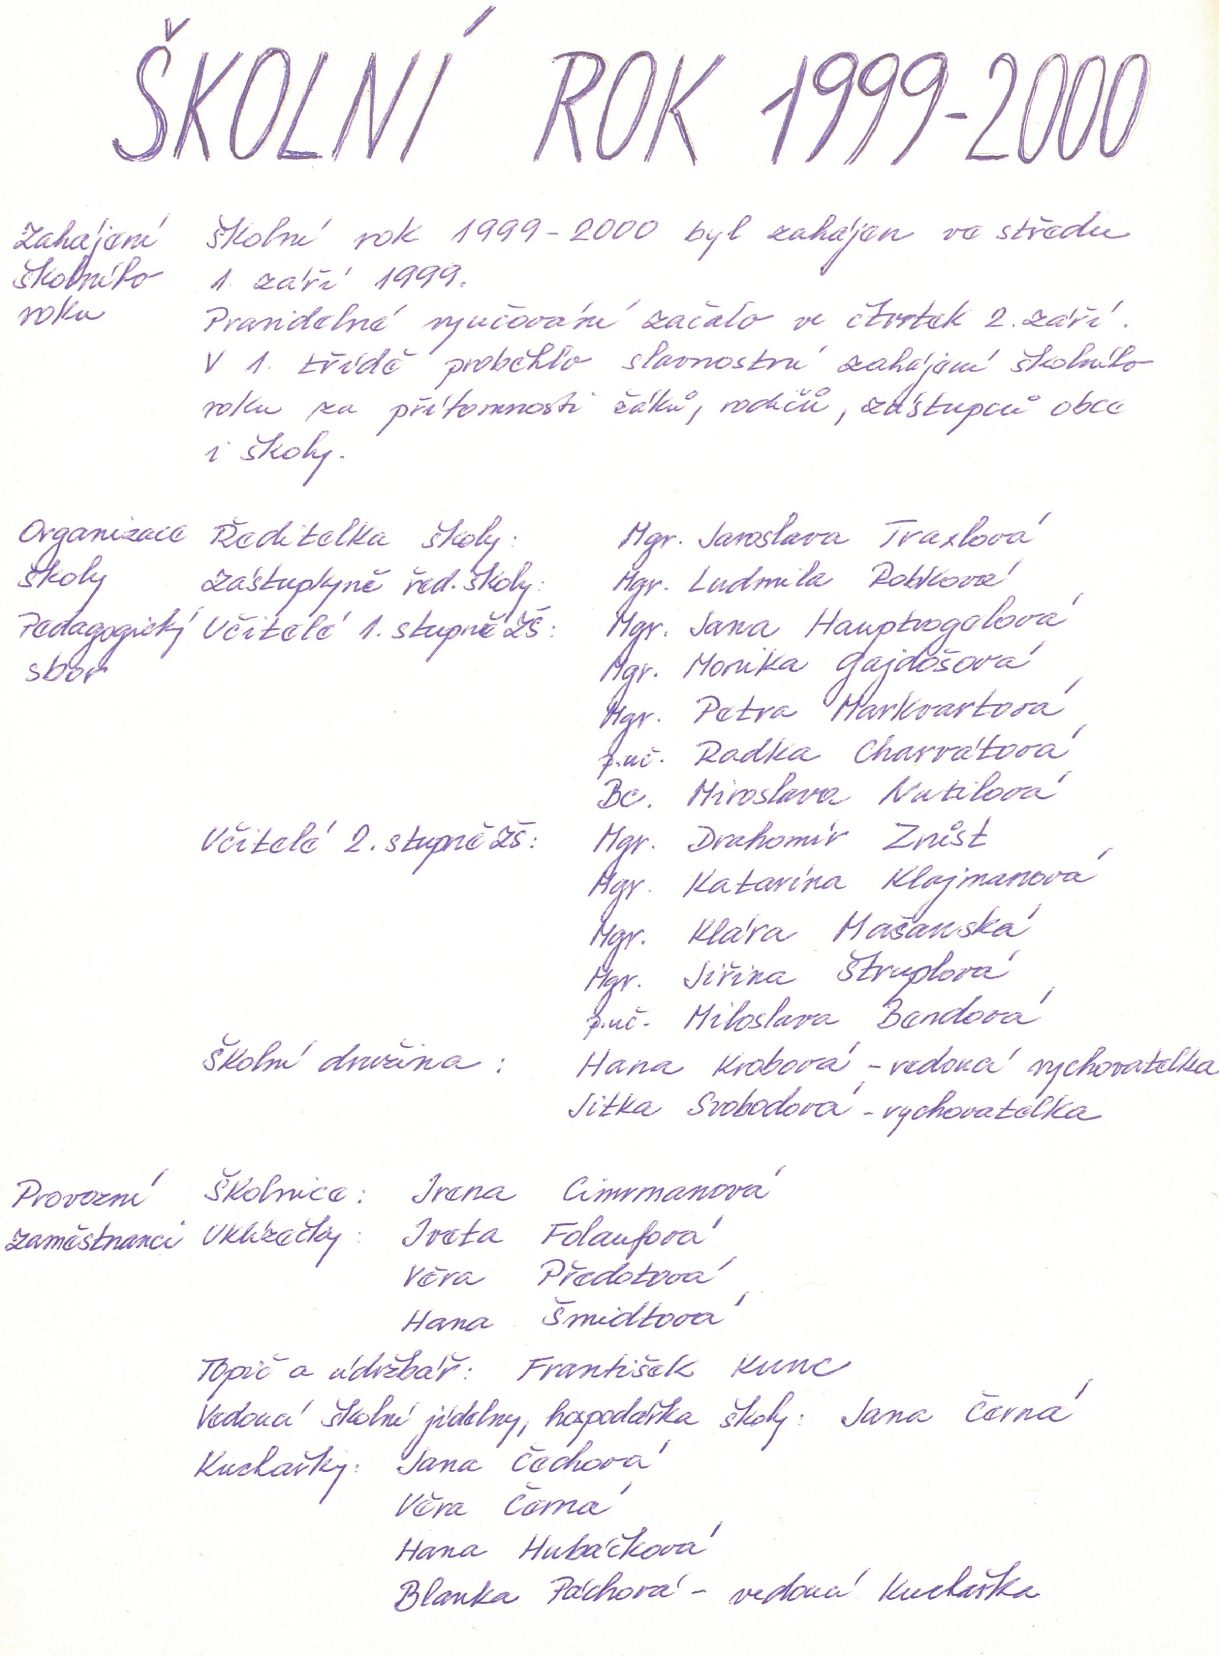 ŠKOLNÍ ROK 1999-2000
Zahájení
školního
roku
Školní rok 1999-2000 byl zahájen ve středu
1. září 1999.
Pravidelné vyučování začalo ve čtvrtek 2. září.
V 1. třídě proběhlo slavnostní zahájení školního
roku za přítomnosti žáků, rodičů, zástupců obce
i školy.
Organizace
školy
Pedagogický
sbor
Ředitelka školy: Mgr. Jaroslava Traxlová
Zástupkyně řed. školy: Mgr. Ludmila
Učitelé 1. stupně ZŠ: Mgr. Jana Hauptvogelová
Mgr. Monika Gajdošová
Mgr. Petra Markvartová
p.uč. Radka Charvátová
Bc. Miroslava Nutilová
Učitelé 2. stupně ZŠ: Mgr. Drahomír
Mgr. Katarína Klajmanová
Mgr. Klára Mašanská
Mgr. Jiřina Štruplová
p.uč. Miloslava Bendová
Školní družina: Hana Krobová - vedoucí vychovatelka
Jitka Svobodová - vychovatelka
Provozní
zaměstnanci
Školnice: Irena Cimrmanová
Uklízečky: Iveta Folaufová
Věra Předotová
Hana Šmidtová
Topič a údržbář: František Kunc
Vedoucí školní jídelny, hospodářka školy: Jana Černá
Kuchařky: Jana Čechová
Věra Černá
Hana Hubáčková
Blanka Páchová - vedoucí kuchařka